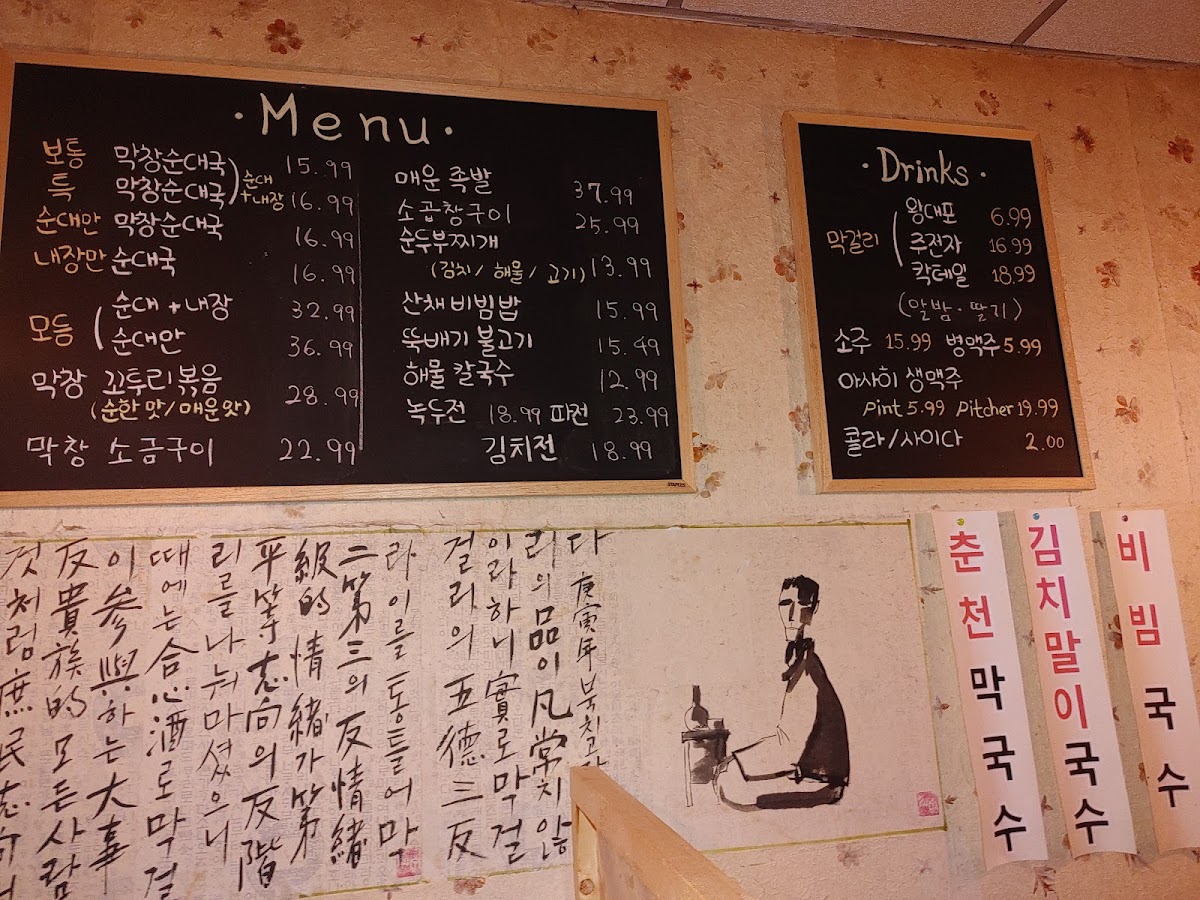 ·Menu·
보통 막창순대국 15.99
특 막창순대국 16.99
순대
+내장
순대만 막창순대국 16.99
내장만 순대국 16.99
모듬
순대+내장 32.99
순대만 36.99
막창 꼬투리볶음 28.99
(순한맛/매운맛)
막창 소금구이 22.99
매운 족발 37.99
소곱창구이 25.99
순두부찌개
(김치/해물/고기) 13.99
산채비빔밥 15.99
뚝배기 불고기 15.49
해물 칼국수 12.99
녹두전 18.99 파전 23.99
김치전 18.99
STAPLES
·Drinks·
막걸리
왕대포 6.99
주전자 16.99
칵테일 18.99
(알밤·딸기)
소주 15.99 병맥주 5.99
아사히 생맥주
Pint 5.99 Pitcher 19.99
콜라/사이다 2.00
다 庚寅年
리의 品이 凡常치 않
이라하니 實로 막걸
걸리의 五德三反
라 이를 통틀어 막
二 第三의 反情緖
級的 情緖가 第
平等志向의 反階
리를 나눠마셨으니
때에는 合心酒로 막걸
이 參與하는 大事
反貴族的 모든 사람
것처럼 庶民志向
춘천막국수
김치말이국수
비빔국수